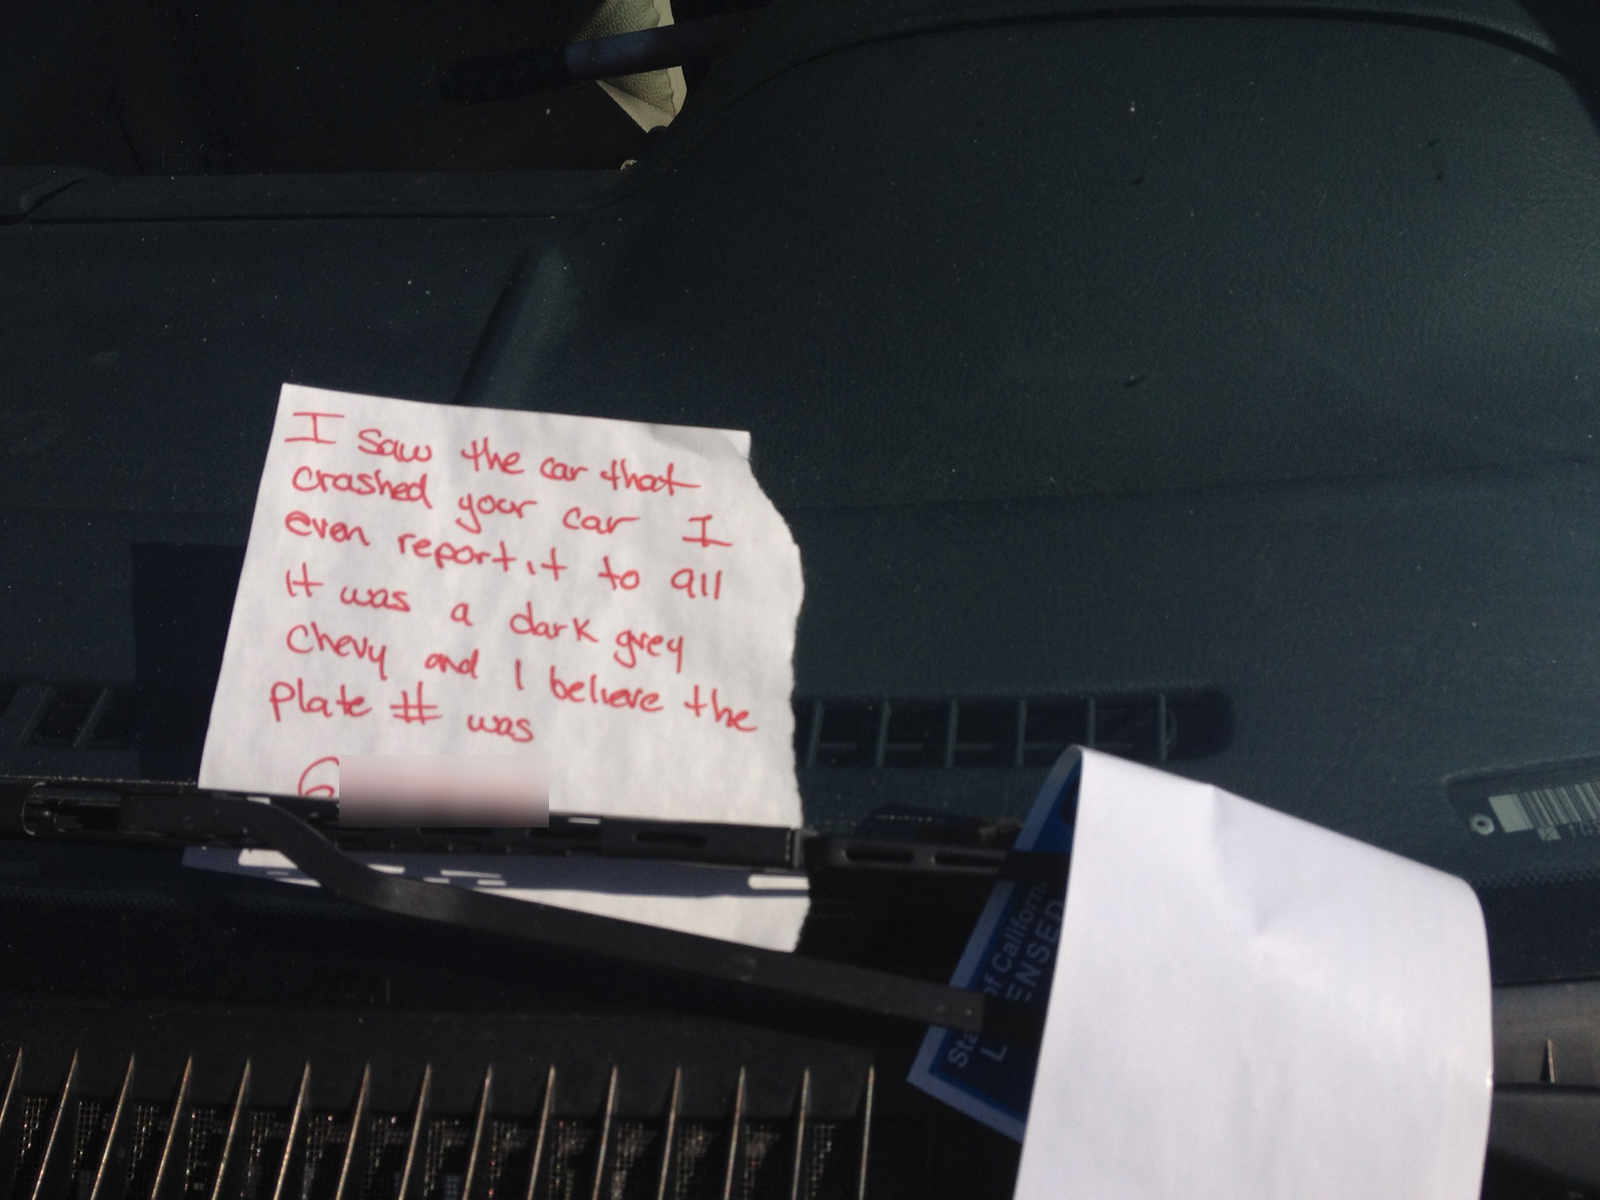 I saw the car that
crashed your car I
even report it to 911
It was a dark grey
Chevy and I believe the
plate # was
6
of California
ENSED